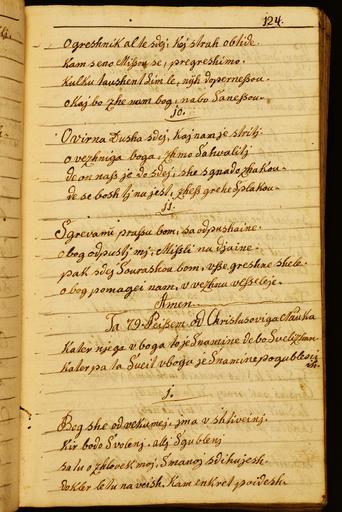 124.
O greshnik al te sdej kaj strah obhide.
Kam seno Mißou se, pregreshimo.
Kulku taushent Sim le, nijh doperneßou.
o kaj bo zhe nam bog, nabo Saneßou.
10.
O virna Dusha sdej, kaj nam je striti
o vezhniga boga, zhmo Sahvaliti
de on naß je do sdej, she sgnado zhakou.
de se bosh ti najest, zheß grehe Splakou.
11.
S grevami praßu bom, sa odpushaine
o bog odpusti mj, Mißli na djaine.
pak sdej Sourashou bom, vße greshne shele
o bog pomagei nam, v vezhnu veßeleje.
Amen.
Ta 79 Peißem. od Christusoviga Nauka
Kater njega v boga to je Snamine de bo Svelizhan
Kater pa ta Sveit vboga je Snamine pogublenja
1.
Bog she od vekumej, jma v shtiveinj.
Kir bodo Svolenj, alj Sgublenj
sa tu o zhlovek moj, Smanoj sdihujesh.
dokler le tu na veish, kam enkret poidesh.